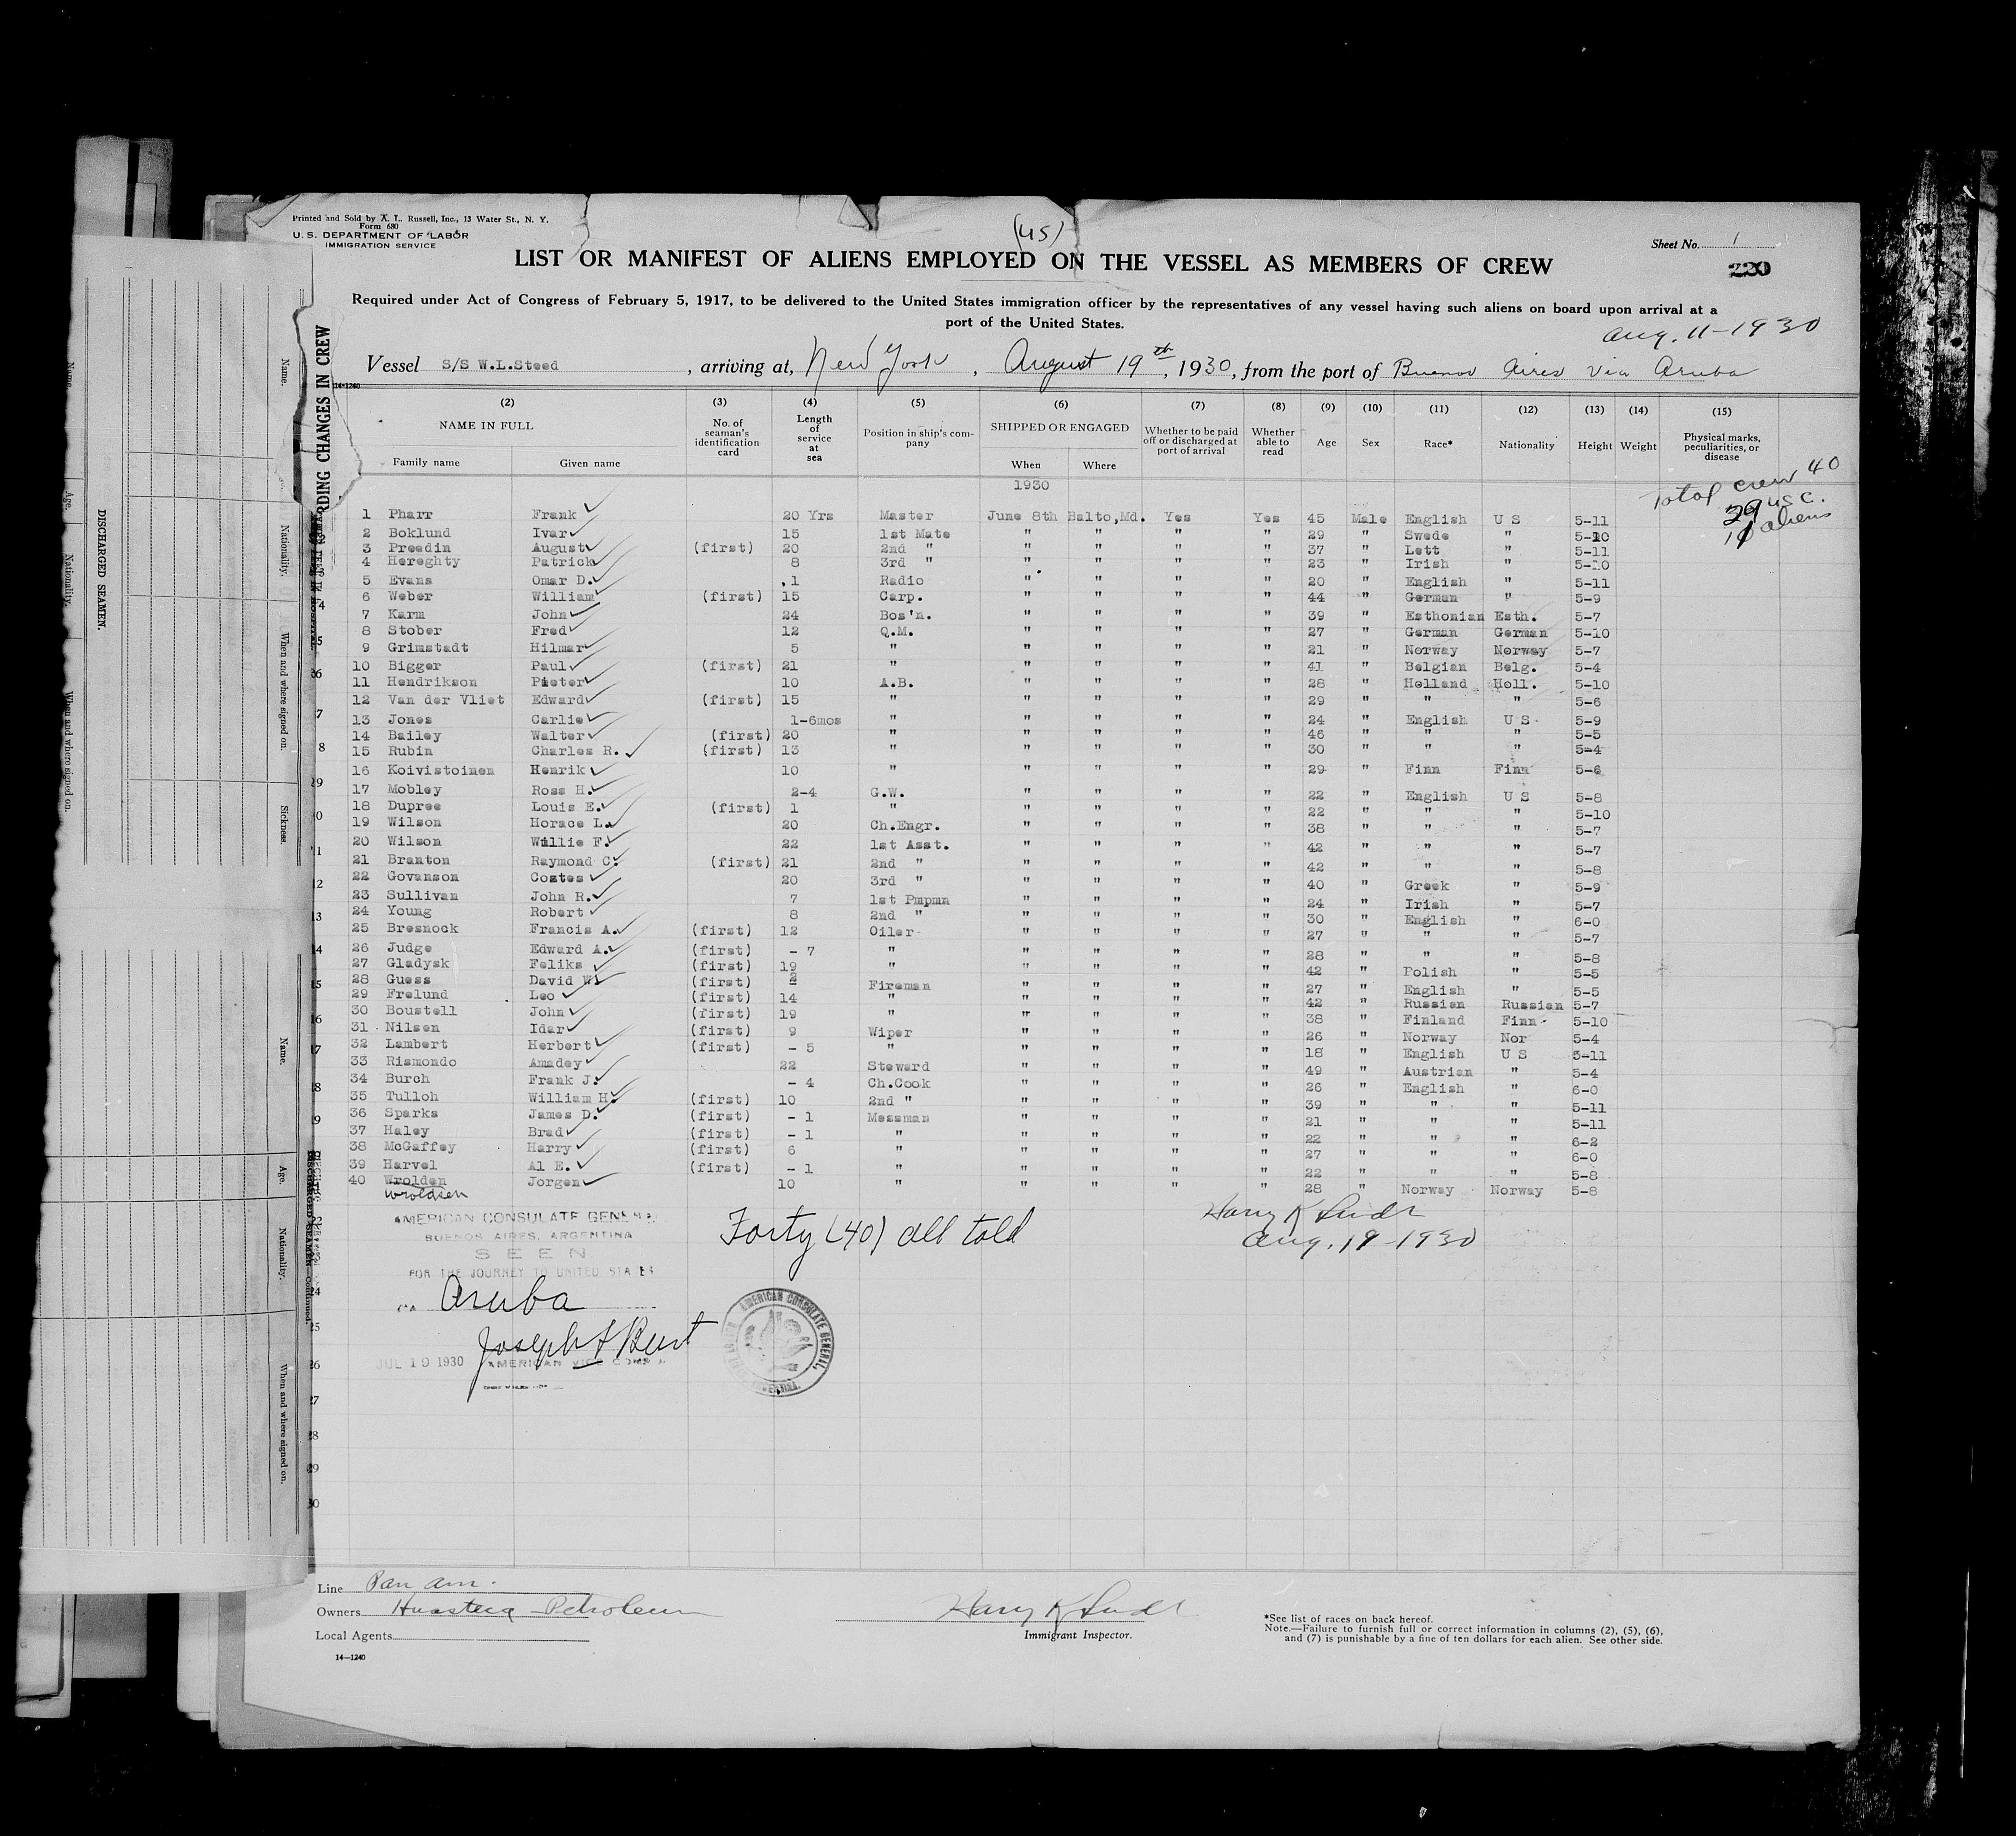 Printed and Sold by A. L. Russell, Inc., 13 Water St., N. Y.
Form 680
U. S. DEPARTMENT OF LABOR
IMMIGRATION SERVICE
(US)
Sheet No. 1
220
LIST OR MANIFEST OF ALIENS EMPLOYED ON THE VESSEL AS MEMBERS OF CREW
Required under Act of Congress of February 5, 1917, to be delivered to the United States immigration officer by the representatives of any vessel having such aliens on board upon arrival at a
port of the United States.
Aug. 11-1930
Vessel S/S W.L.Steed, arriving at, New York, August 19th, 1930, from the port of Buenos Aires via Aruba
14-1240
(2) (3) (4) (5) (6) (7) (8) (9) (10) (11) (12) (13) (14) (15)
NAME IN FULL
Family name Given name
No. of seaman's identification card
Length of service at sea
Position in ship's company
SHIPPED OR ENGAGED
When Where
Whether to be paid off or discharged at port of arrival
Whether able to read
Age Sex Race* Nationality Height Weight
Physical marks, peculiarities, or disease
1930
Total crew 40
29 USC.
aliens
1 Pharr Frank 20 Yrs Master June 8th Balto,Md. Yes Yes 45 Male English U S 5-11
2 Boklund Ivar 15 1st Mate " " " " 29 " Swede " 5-10
3 Preedin August (first) 20 2nd " " " " " 37 " Lett " 5-11
4 Hereghty Patrick 8 3rd " " " " " 23 " Irish " 5-10
5 Evans Omar D. 1 Radio " " " " 20 " English " 5-11
6 Weber William (first) 15 Carp. " " " " 44 " German " 5-9
7 Karm John 24 Bos'n. " " " " 39 " Esthonian Esth. 5-7
8 Stober Fred 12 Q.M. " " " " 27 " German German 5-10
9 Grimstadt Hilmar 5 " " " " " 21 " Norway Norway 5-7
10 Bigger Paul (first) 21 " " " " " 41 " Belgian Belg. 5-4
11 Hendrikson Pieter 10 A.B. " " " " 28 " Holland Holl. 5-10
12 Van der Vliet Edward (first) 15 " " " " " 29 " " " 5-6
13 Jones Carlie 1-6mos " " " " " 24 " English U S 5-9
14 Bailey Walter (first) 20 " " " " " 46 " " " 5-5
15 Rubin Charles R. (first) 13 " " " " " 30 " " " 5-4
16 Koivistoinen Henrik 10 " " " " " 29 " Finn Finn 5-6
17 Mobley Ross H. 2-4 G.W. " " " " 22 " English U S 5-8
18 Dupree Louis E. (first) 1 " " " " " 22 " " " 5-10
19 Wilson Horace L. 20 Ch.Engr. " " " " 38 " " " 5-7
20 Wilson Willie F. 22 1st Asst. " " " " 42 " " " 5-7
21 Branton Raymond C. (first) 21 2nd " " " " " 42 " " " 5-8
22 Govanson Costes 20 3rd " " " " " 40 " Greek " 5-9
23 Sullivan John R. 7 1st Pmpmn " " " " 24 " Irish " 5-7
24 Young Robert 8 2nd " " " " " 30 " English " 6-0
25 Bresnock Francis A. (first) 12 Oiler " " " " 27 " " " 5-7
26 Judge Edward A. (first) - 7 " " " " " 28 " " " 5-8
27 Gladysk Feliks (first) 19 " " " " " 42 " Polish " 5-5
28 Guess David W. (first) 2 Fireman " " " " 27 " English " 5-5
29 Frelund Leo (first) 14 " " " " " 42 " Russian Russian 5-7
30 Boustell John (first) 19 " " " " " 38 " Finland Finn 5-10
31 Nilsen Idar (first) 9 Wiper " " " " 26 " Norway Nor 5-4
32 Lambert Herbert (first) - 5 " " " " " 18 " English U S 5-11
33 Rismondo Amadey 22 Steward " " " " 49 " Austrian " 5-4
34 Burch Frank J. - 4 Ch.Cook " " " " 26 " English " 6-0
35 Tulloh William H. (first) 10 2nd " " " " " 39 " " " 5-11
36 Sparks James D. (first) - 1 Messman " " " " 21 " " " 5-11
37 Haley Brad (first) - 1 " " " " " 22 " " " 6-2
38 McGaffey Harry (first) 6 " " " " " 27 " " " 6-0
39 Harvel Al E. (first) - 1 " " " " " 22 " " " 5-8
40 Wrolden Jorgen 10 " " " " " 28 " Norway Norway 5-8
Wroldsen
AMERICAN CONSULATE GENERAL
BUENOS AIRES, ARGENTINA
SEEN
FOR THE JOURNEY TO UNITED STATES
Aruba
Joseph F Burt
JUL 19 1930 AMERICAN VICE CONSUL
AMERICAN CONSULATE GENERAL,
Forty (40) all told
Harry K
Aug. 19-1930
Line Pan Am.
Owners Huasteca Petroleum
Local Agents
14-1240
Harry K
Immigrant Inspector.
*See list of races on back hereof.
Note.—Failure to furnish full or correct information in columns (2), (5), (6),
and (7) is punishable by a fine of ten dollars for each alien. See other side.
RDING CHANGES IN CREW
DISCHARGED SEAMEN.
Name.
Age.
Nationality.
When and where signed on.
Name.
Nationality.
When and where signed on.
Sickness.
Name.
Age.
Nationality.
When and where signed on.
DISCHARGED SEAMEN—Continued.